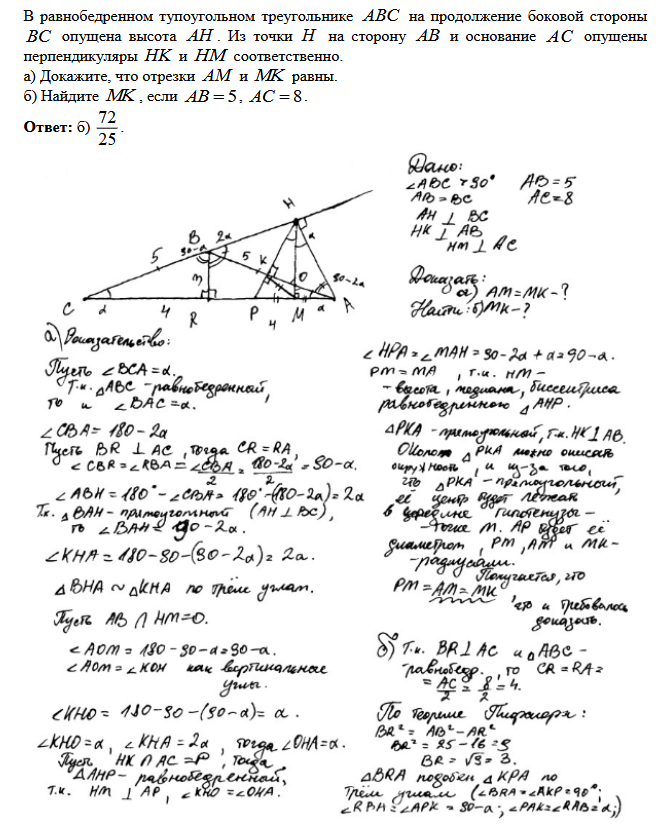 В равнобедренном тупоугольном треугольнике ABC на продолжение боковой стороны
BC опущена высота AH . Из точки H на сторону AB и основание AC опущены
перпендикуляры HK и HM соответственно.
а) Докажите, что отрезки AM и MK равны.
б) Найдите MK , если AB = 5 , AC = 8 .
Ответ: б) 72/25 .
Дано:
∠ABC > 90° AB = 5
AB = BC AC = 8
AH ⊥ BC
HK ⊥ AB
HM ⊥ AC
Доказать:
а) AM = MK - ?
Найти: б) MK - ?
H
B 2α
90-α
α
5
5
K
O
90-2α
3
C
α
4
R
P
4
M
α
A
а) Доказательство:
Пусть ∠BCA = α.
Т.к. △ABC - равнобедренный,
то и ∠BAC = α.
∠CBA = 180 - 2α
Пусть BR ⊥ AC, тогда CR = RA,
∠CBR = ∠RBA = ∠CBA/2 = 180-2α/2 = 90-α.
∠ABH = 180° - ∠CBA = 180° - (180-2α) = 2α
Т.к. △BAH - прямоугольный (AH ⊥ BC),
то ∠BAH = 90 - 2α.
∠KHA = 180 - 90 - (90 - 2α) = 2α.
△BHA ~ △KHA по трём углам.
Пусть AB ∩ HM = O.
∠AOM = 180 - 90 - α = 90 - α.
∠AOM = ∠KOH как вертикальные
углы.
∠KHO = 180 - 90 - (90 - α) = α.
∠KHO = α, ∠KHA = 2α, тогда ∠OHA = α.
Пусть HK ∩ AC = P, тогда
△AHP - равнобедренный,
т.к. HM ⊥ AP, ∠KHO = ∠OHA.
∠HPA = ∠MAH = 90 - 2α + α = 90 - α.
PM = MA, т.к. HM -
- высота, медиана, биссектриса
равнобедренного △AHP.
△PKA - прямоугольный, т.к. HK ⊥ AB.
Около △PKA можно описать
окружность, и из-за того,
что △PKA - прямоугольный,
её центр будет лежать
в середине гипотенузы -
- точке M. AP будет её
диаметром, PM, AM и MK -
- радиусами.
Получается, что
PM = AM = MK,
что и требовалось
доказать.
б) Т.к. BR ⊥ AC и △ABC -
- равнобедр., то CR = RA =
= AC/2 = 8/2 = 4.
По теореме Пифагора:
BR² = AB² - AR²
BR² = 25 - 16 = 9
BR = √9 = 3.
△BRA подобен △KPA по
трём углам (∠BRA = ∠AKP = 90°;
∠RBA = ∠APK = 90 - α; ∠PAK = ∠RAB = α;)